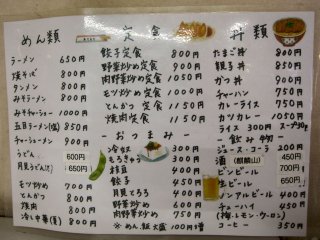 めん類
ラーメン 650円
焼そば 800円
タンメン 800円
みそラーメン 800円
みそチャーシュー 1000円
五目ラーメン(塩) 850円
チャーシューメン 900円
うどん 600円
月見うどん 650円
モツ炒め 700円
とんかつ 800円
焼肉 800円
冷し中華(夏) 800円
定食
餃子定食 800円
野菜炒め定食 900円
肉野菜炒め定食 950円
モツ炒め定食 1000円
とんかつ定食 1150円
焼肉定食 1150円
おつまみ
冷奴 300円
もろきゅう 300円
枝豆 400円
餃子 450円
月見とろろ 400円
野菜炒め 600円
肉野菜炒め 750円
※めん、飯大盛 100円増
丼類
たまご丼 800円
親子丼 850円
カツ丼 900円
チャーハン 750円
カレーライス 750円
カツカレー 1050円
ライス 300円 スープ 50円
飲み物
ジュース・コーラ 200円
酒(麒麟山) 450円
ビンビール 700円
生ビール 650円
ノンアルビール 450円
チューハイ 450円
(梅・レモン・ウーロン)
コーヒー 350円